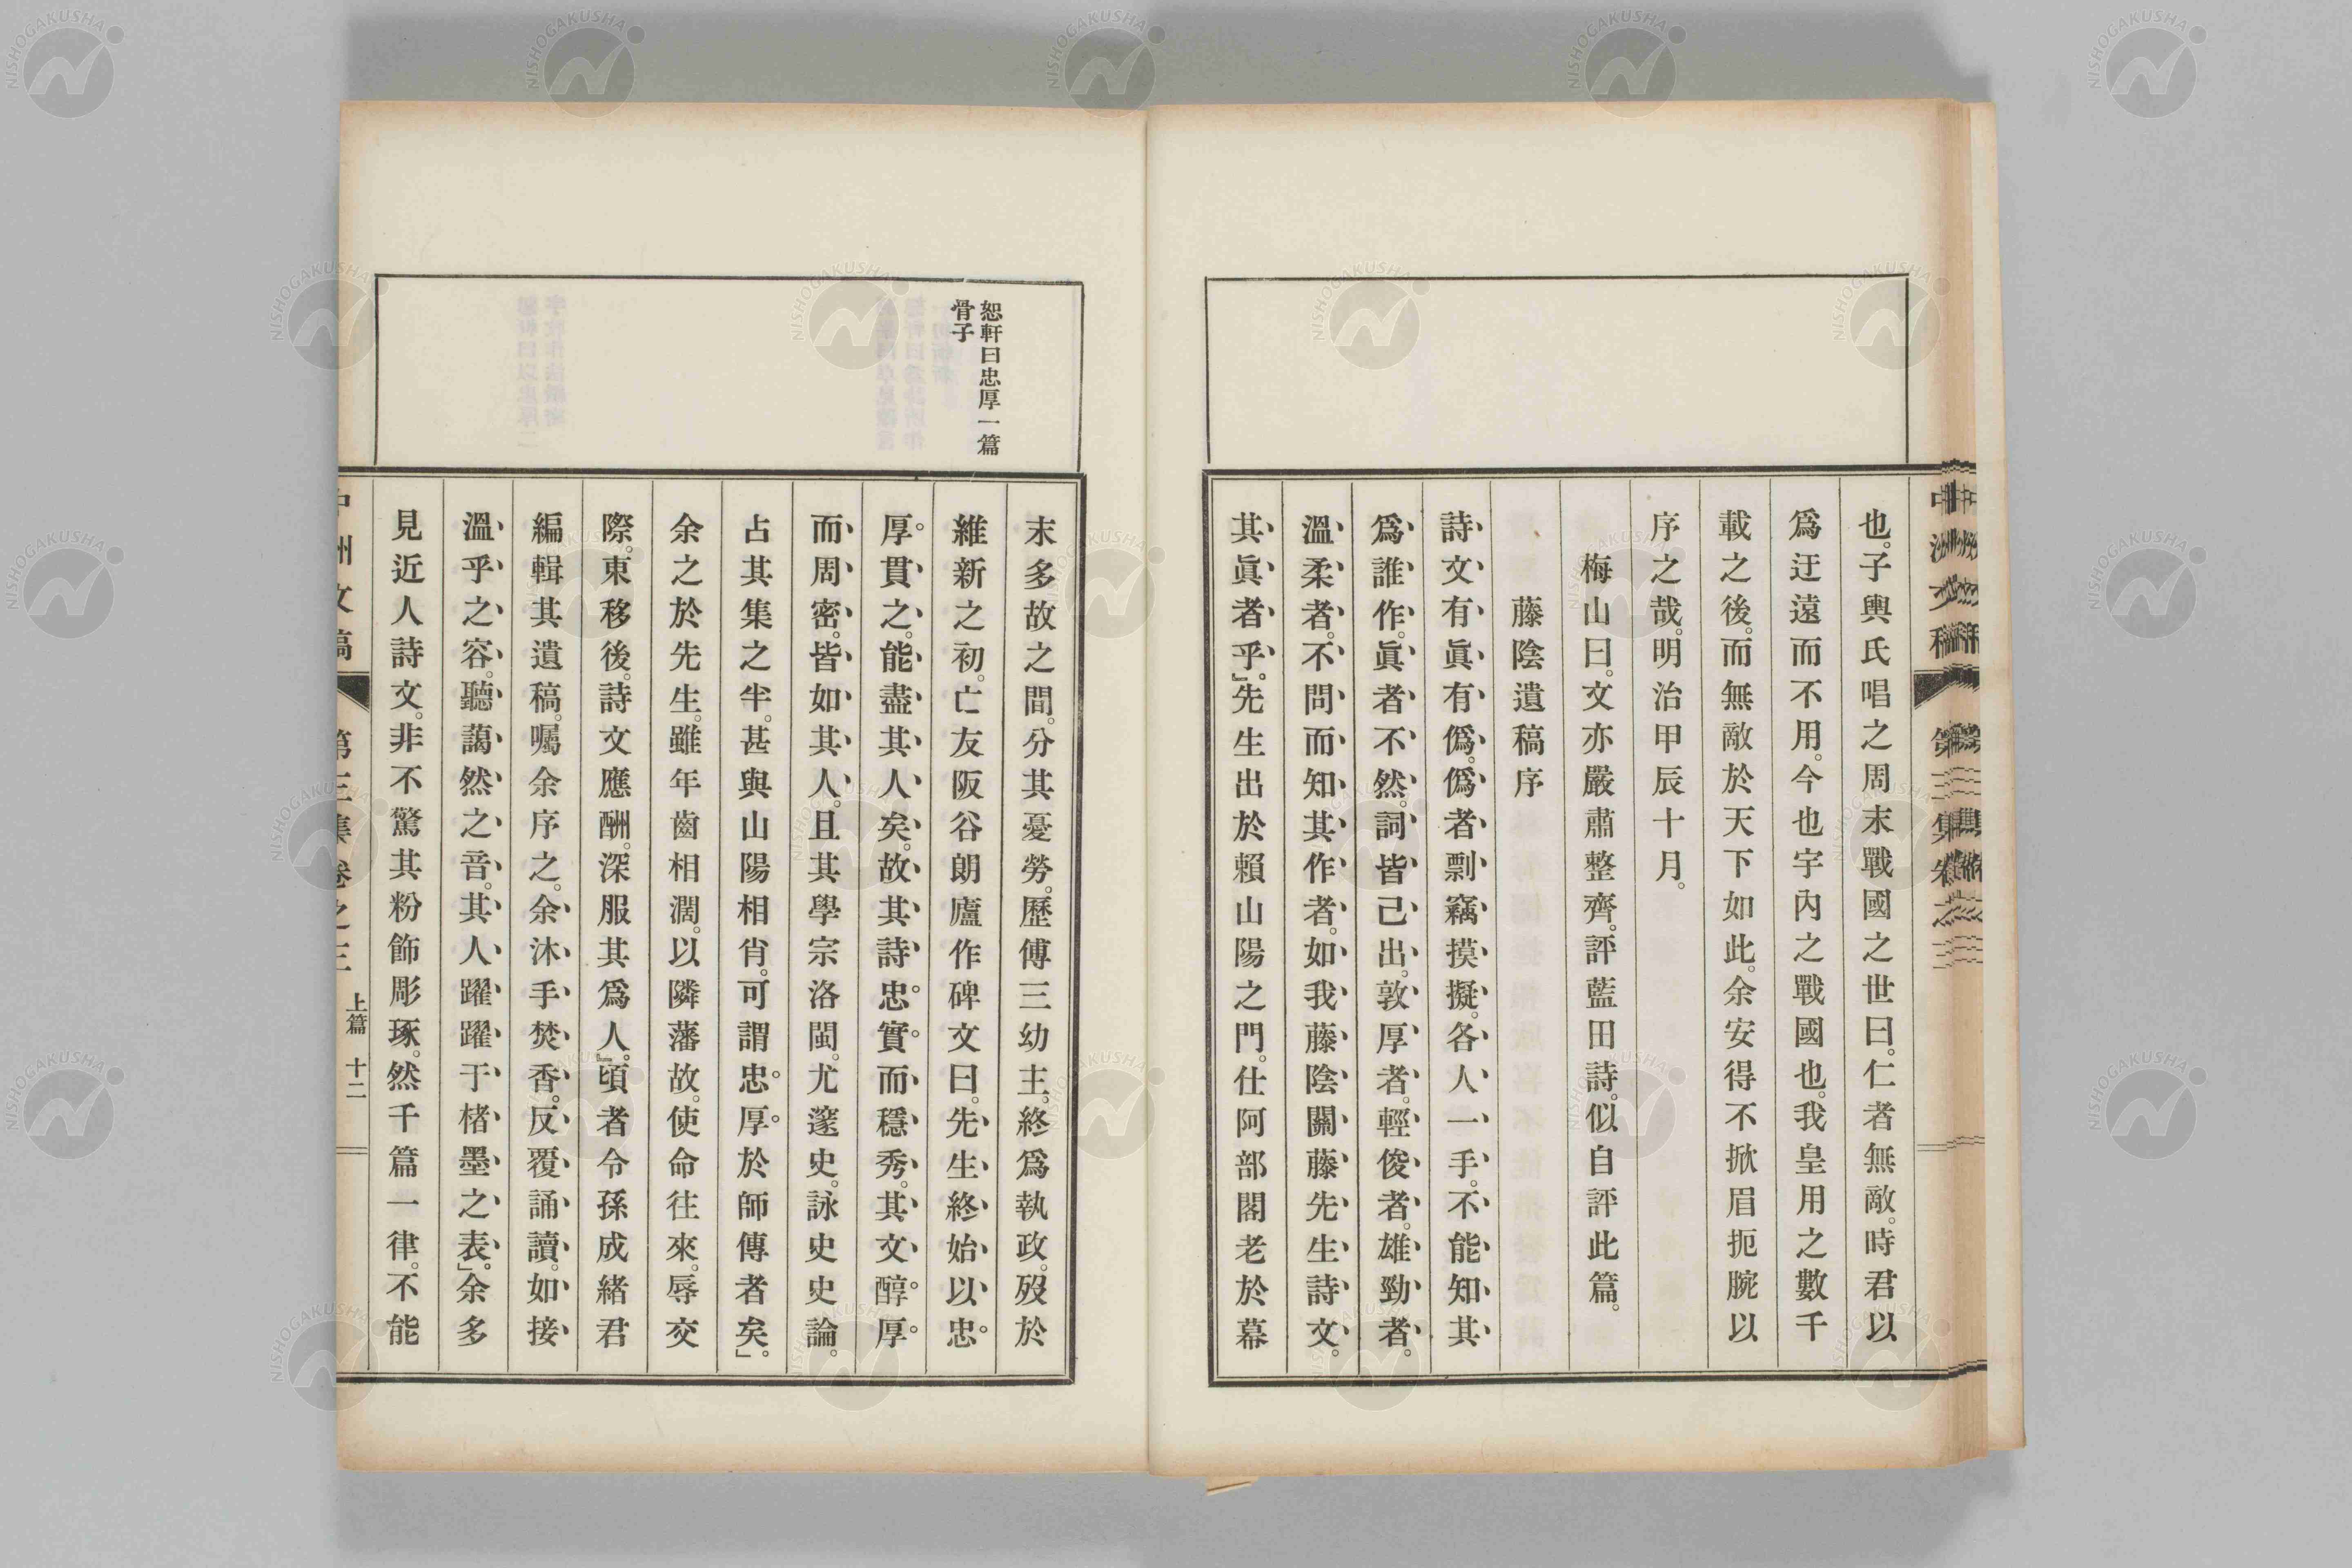 也。子輿氏唱之周末戰國之世曰。仁者無敵。時君以
爲迂遠而不用。今也宇內之戰國也。我皇用之數千
載之後。而無敵於天下如此。余安得不掀眉扼腕以
序之哉。明治甲辰十月。
梅山曰。文亦嚴肅整齊。評藍田詩。似自評此篇。
藤陰遺稿序
詩文有眞有僞。僞者剽竊摸擬。各人一手。不能知其
爲誰作。眞者不然。詞皆己出。敦厚者。輕俊者。雄勁者。
溫柔者。不問而知其作者。如我藤陰關藤先生詩文。
其眞者乎。」先生出於賴山陽之門。仕阿部閣老於幕
恕軒曰忠厚一篇
骨子
末多故之間。分其憂勞。歷傅三幼主。終爲執政。歿於
維新之初。亡友阪谷朗廬作碑文曰。先生終始以忠
厚貫之。能盡其人矣。故其詩忠實而穩秀。其文醇厚
而周密。皆如其人。且其學宗洛閩。尤邃史。詠史史論。
占其集之半。甚與山陽相肖。可謂忠厚於師傳者矣。」
余之於先生。雖年齒相濶。以隣藩故。使命往來。辱交
際。東移後。詩文應酬。深服其爲人。」頃者令孫成緒君
編輯其遺稿。囑余序之。余沐手焚香。反覆誦讀。如接
溫乎之容。聽藹然之音。其人躍躍于楮墨之表。」余多
見近人詩文。非不驚其粉飾彫琢。然千篇一律。不能
中洲文稿 第三集卷之三 上篇 十二
NISHOGAKUSHA